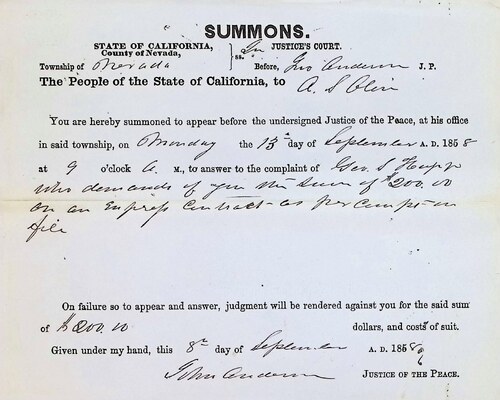 SUMMONS.
STATE OF CALIFORNIA,
County of Nevada,
ss. In JUSTICE'S COURT.
Township of Nevada Before, Anderson J. P.
The People of the State of California, to A. S. Olin
You are hereby summoned to appear before the undersigned Justice of the Peace, at his office
in said township, on Monday the 13th day of September A. D. 1858
at 9 o'clock A. M., to answer to the complaint of Geo. S. Hupp
who demands of you the sum of $200.00
on an Express Contract as per compt on
file
On failure so to appear and answer, judgment will be rendered against you for the said sum
of $200.00 dollars, and costs of suit.
Given under my hand, this 8th day of September A. D. 1858
John Anderson JUSTICE OF THE PEACE.